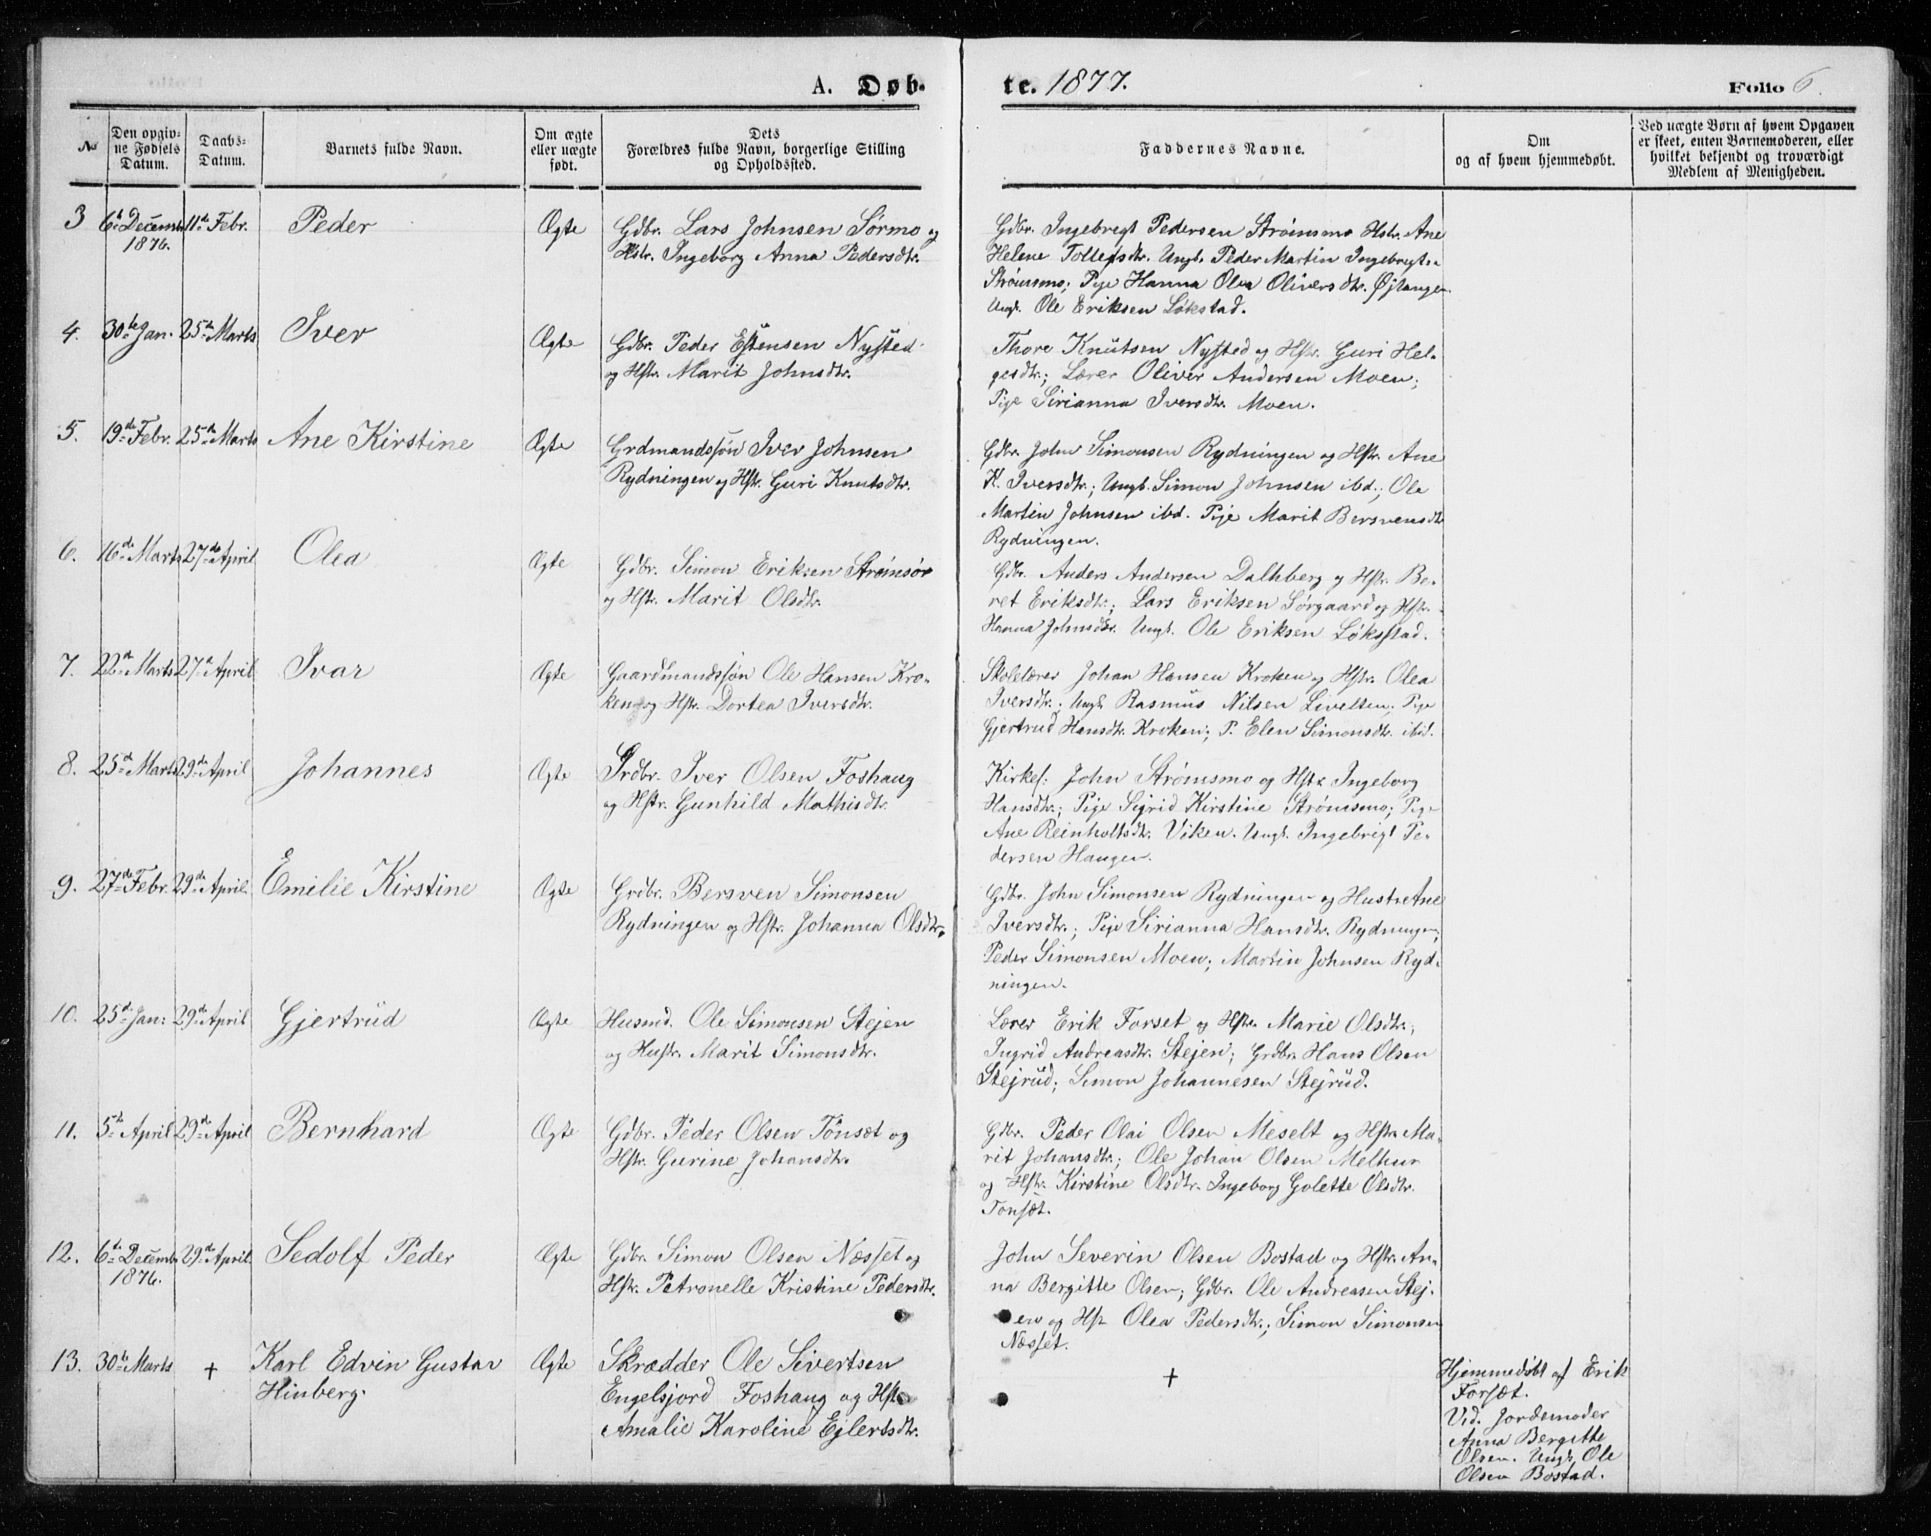 A. Døb-
te. 1877.
Folio 6.
No
Den opgiv-
ne Fødsels
Datum.
Daabs-
Datum.
Barnets fulde Navn.
Om ægte
eller uægte
født.
Dets
Forældres fulde Navn, borgerlige Stilling
og Opholdssted.
Faddernes Navne.
Om
og af hvem hjemmedøbt.
Ved uægte Børn af hvem Opgaven
er skeet, enten Barnemoderen, eller
hvilket bekjendt og troværdigt
Medlem af Menigheden.
3 6te Decemb. 11te Febr. Peder Ægte Gdbr. Lars Johnsen Sørmo og
1876.
Hstr. Ingeborg Anna Pedersdtr.
Gdbr. Ingebrigt Pedersen Strømsmo Hstr. Ane
Helene Tollefsdtr. Ungk. Peder Martin Ingebrigts.
Strømsmo; Pige Hanna Olea Oliversdtr. Øjtangen
Ungk. Ole Eriksen Løkstad.
4. 30te Jan. 25de Marts Iver Ægte Gdbr. Peder Estensen Nysted
og Hstr. Marit Johnsdtr.
Thore Knutsen Nysted og Hstr. Guri Hel-
gesdtr.; Lærer Oliver Andersen Moen;
Pige Sirianna Iversdtr. Moen.
5. 19de Febr. 25de Marts Ane Kirstine Ægte Grdmandssøn Iver Johnsen
Rydningen og Hstr. Guri Knutsdtr.
Gdbr. John Simonsen Rydningen og Hstr. Ane
K. Iversdtr.; Ungk. Simon Johnsen ibd.; Ole
Martin Johnsen ibd. Pige Marit Bersvensdtr
Rydningen.
6. 16de Marts 27de April Olea Ægte Gdbr. Simon Eriksen Strømsør
og Hstr. Marit Olsdtr.
Gdbr. Anders Andersen Dalhberg og Hstr. Be-
ret Eriksdtr.; Lars Eriksen Sørgaard og Hstr.
Hanna Johnsdtr. Ungk. Ole Eriksen Løksstad.
7. 22de Marts 27de April Ivar Ægte Gaardmandssøn Ole Hansen Kro-
ken og Hstr. Dortea Iversdtr.
Skolelærer Johan Hansen Kroken og Hstr. Olea
Iversdtr. Ungk. Rasmus Nilsen Livelten; Pige
Gjertrud Hansdtr. Kroken; P. Elen Simonsdtr. ibid.
8. 25de Marts 29de April Johannes Ægte Grdbr. Iver Olsen Foshaug
og Hstr. Gunhild Mathisdtr.
Kirkes. John Strømsmo og Hstr. Ingeborg
Hansdtr.; Pige Sigrid Kirstine Strømsmo; Pige
Ane Reinholtsdtr. Viken. Ungk. Ingebrigt Pe-
dersen Haugen.
9. 27de Febr. 29de April. Emilie Kirstine Ægte Grdbr. Bersven Simonsen
Rydningen og Hstr. Johanna Olsdtr.
Gdbr. John Simonsen Rydningen og Hustr. Ane
Iversdtr.; Pige Sirianna Hansdtr. Rydningen;
Peder Simonsen Moen; Martin Johnsen Ryd-
ningen.
10. 25de Jan: 29de April Gjertrud Ægte Husmd. Ole Simonsen Stejen
og Hustr. Marit Simonsdtr.
Lærer Erik Forset og Hstr. Marie Olsdtr.;
Ingrid Andreasdtr. Stejen; Grdbr. Hans Olsen
Stejrud; Simon Johannesen Stejrud.
11. 5te April 29de April Bernhard Ægte Gdbr. Peder Olsen Tønsæt og
Hstr. Gurine Johansdtr.
Gdbr. Peder Olai Olsen Meselt og Hstr. Ma-
rit Johansdtr.; Ole Johan Olsen Melhur
og Hstr. Kirstine Olsdtr. Ingeborg Golette Olsdtr.
Tonsæt.
12. 6te Decemb. 29de April. Sedolf Peder Ægte Gdbr. Simon Olsen Næsset og
1876.
Hstr. Petronelle Kristine Pedersdtr.
John Severin Olsen Bostad og Hstr. An-
na Bergitte Olsen; Gdbr. Ole Andreasen Stej-
en og Hstr Olea Pedersdtr.; Simon Simonsen
Næsset.
13. 30te Marts + Karl Edvin Gustav Ægte Skrædder Ole Sivertsen
Hinberg.
Engelsjord Foshaug og Hstr.
Amalie Karoline Ejlertsdtr.
+
Hjemmedøbt af Erik
Forsæt.
Vid. Jordemoder
Anna Bergitte
Olsen. Ungk. Ole
Olsen Bostad.